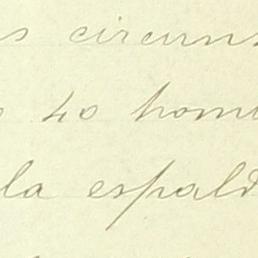 s circuns
40 hom
la espald